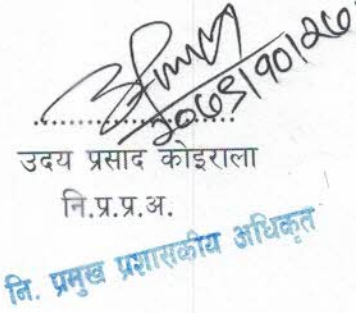 उदय प्रसाद कोइराला
नि.प्र.प्र.अ.
नि. प्रमुख प्रशासकीय अधिकृत